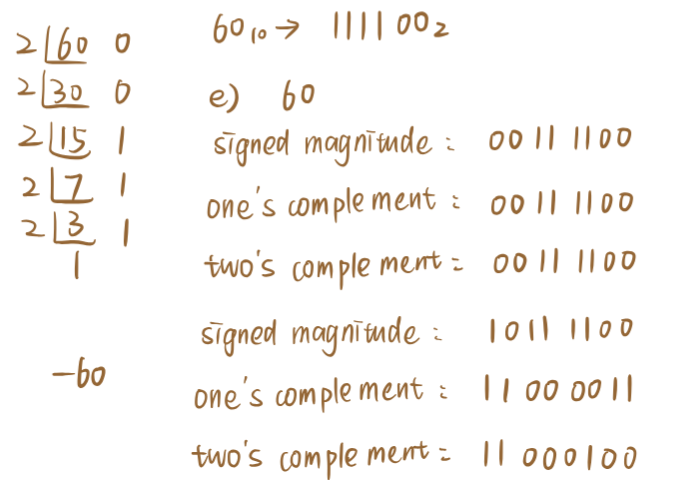 2 60 0
2 30 0
2 15 1
2 7 1
2 3 1
1
60₁₀ → 111100₂
e) 60
signed magnitude: 0011 1100
one's complement: 0011 1100
two's complement: 0011 1100
-60
signed magnitude: 1011 1100
one's complement: 11 00 0011
two's complement: 11 000100